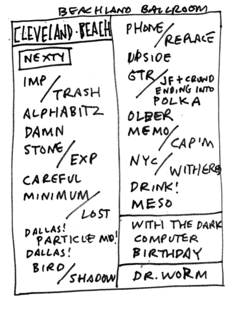 BEACHLAND BALLROOM
CLEVELAND·BEACH
NEXTY
IMP/TRASH
ALPHABITZ
DAMN
STONE/EXP
CAREFUL
MINIMUM/LOST
DALLAS!
PARTICLE MO!
DALLAS!
BIRD/SHADOW
PHONE/REPLACE
UPSIDE
GTR/JF+CROWD
ENDING INTO
POLKA
OLDER
MEMO/CAP'M
NYC/WITHERED
DRINK!
MESO
WITH THE DARK
COMPUTER
BIRTHDAY
DR. WORM